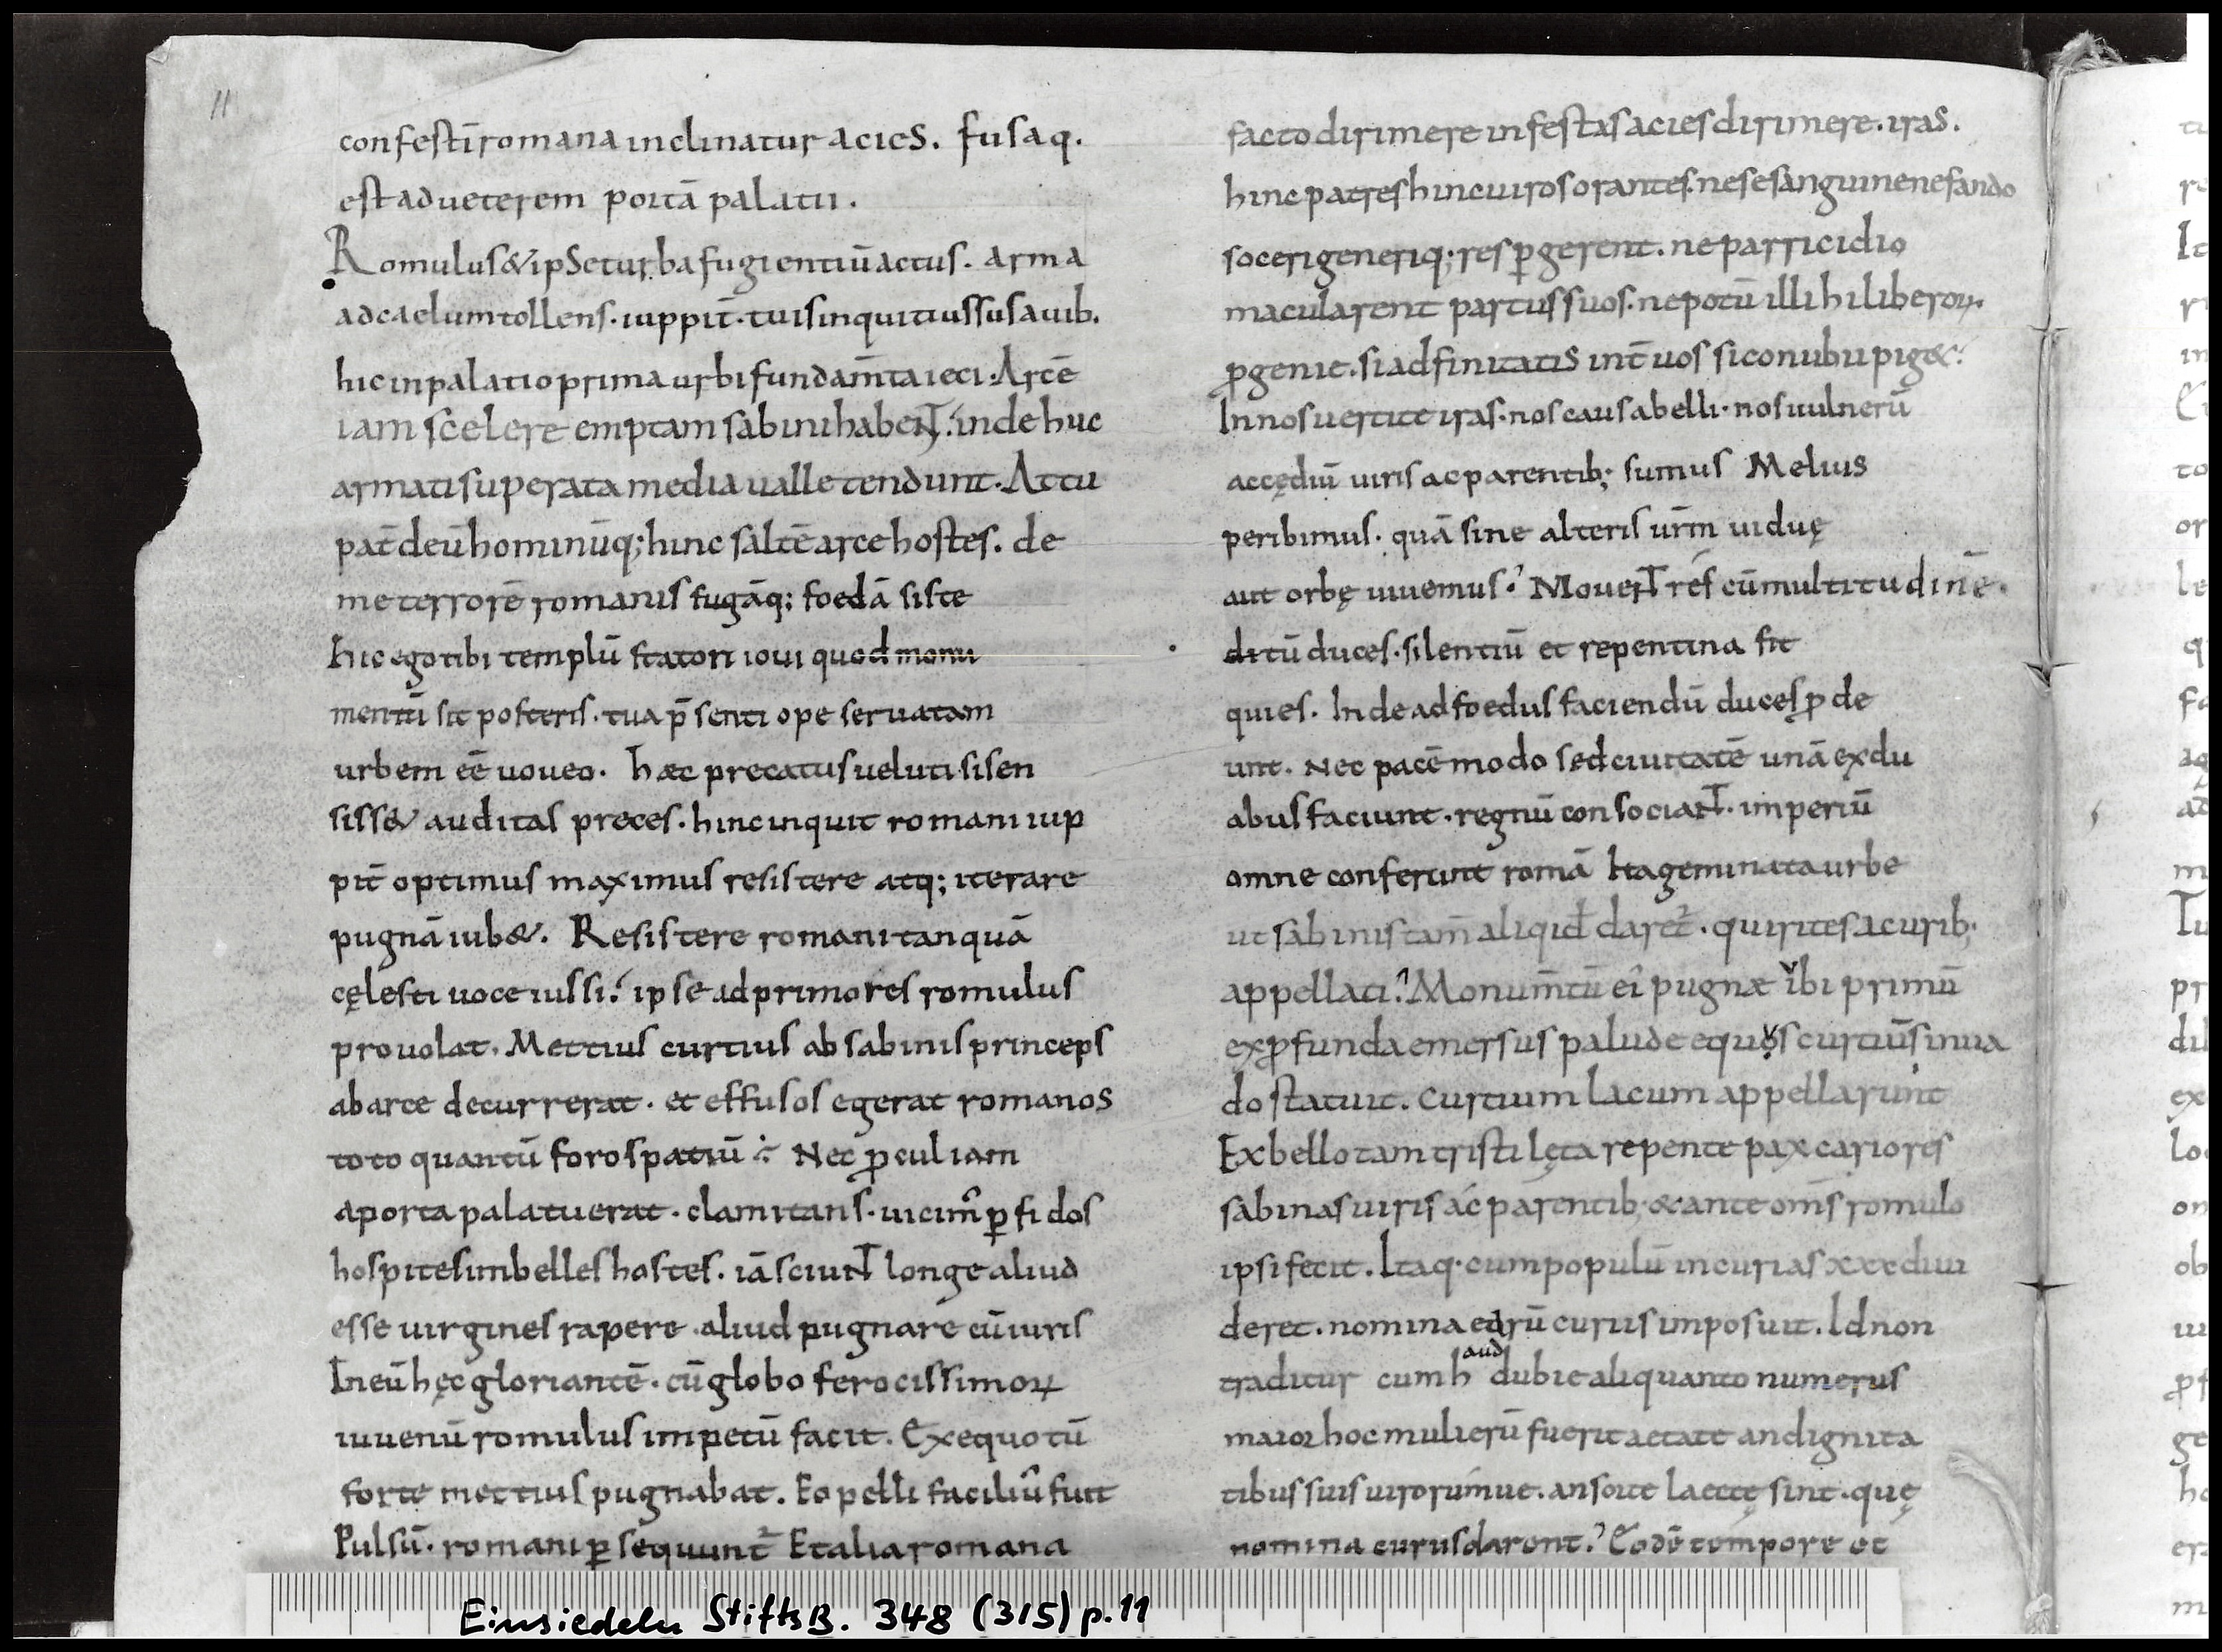 11
confestī romana inclinatur acies. fusaq.
est ad ueterem portā palatii.
Romulus & ipse turba fugientiū actus. arma
ad caelum tollens. iuppit̄. tuis inquit iussus auib.
hic in palatio prima urbi fundam̄ta ieci. Arcē
iam scelere emptam sabini habent. inde huc
armati superata media ualle tendunt. At tu
pat̄ deū hominūq; hinc saltē arce hostes. de
me terrorē romanis fugāq; foedā siste
hic ego tibi templū statori ioui quod monu
mentū sit posteris. tua p̄senti ope seruatam
urbem eē uoueo. haec precatus ueluti si sen
siss& auditas preces. hinc inquit romani iup
pit̄ optimus maximus resistere atq; iterare
pugnā iub&. Resistere romani tanquā
cęlesti uoce iussi. ipse ad primores romulus
prouolat. Mettius curtius ab sabinis princeps
ab arce decurrerat. et effusos egerat romanos
toto quantū foro spatiū. Nec ꝓcul iam
a porta palatii erat. clamitans. uicim̄ ꝑfidos
hospites imbelles hostes. iā sciunt longe aliud
esse uirgines rapere. aliud pugnare cū uiris
In eū hęc gloriantē. cū globo ferocissimoꝝ
iuuenū romulus impetū facit. Ex equo tū
forte mettius pugnabat. Eo pelli faciliū fuit
Pulsū. romani ꝑsequunt̄ Et alia romana
facto dirimere infestas acies dirimere. iras.
hinc patres hinc uiros orantes. ne se sanguine nefando
soceri generiq; respꝑgerent. ne parricidio
macularent partus suos. nepotū illi hi liberoꝝ.
ꝓgenie. si adfinitatis int̄ uos si conubii pig&.
In nos uertite iras. nos causa belli. nos uulnerū
accędiū uiris ac parentib; sumus Melius
peribimus. quā sine alteris urm̄ uiduę
aut orbę uiuemus. Mouent res cū multitudinē.
ditū duces. silentiū et repentina fit
quies. Inde ad foedus faciendū duces ꝓde
unt. Nec pacē modo sed ciuitatē unā ex du
abus faciunt. regnū consociant. imperiū
omne conferunt romā Ita geminata urbe
ut sabinis tam̄ aliqid daret̄. quirites a curib;
appellati. Monum̄tū ei pugnae ibi primū
ex ꝓfunda emersus palude equos curtiū s in ua
do statuit. Curtium lacum appellarunt
Ex bello tam tristi lęta repente pax cariores
sabinas uiris ac parentib; & ante om̄s romulo
ipsi fecit. Itaq. cum populū in curias xxx diui
deret. nomina earū curiis imposuit. Id non
traditur cum haud dubie aliquanto numerus
maior hoc mulierū fuerit aetate an dignita
tibus suis uirorumue. an sorte laectę sint. quę
nomina curiis darent. Eodē tempore et
Einsiedeln StiftsB. 348 (315) p. 11